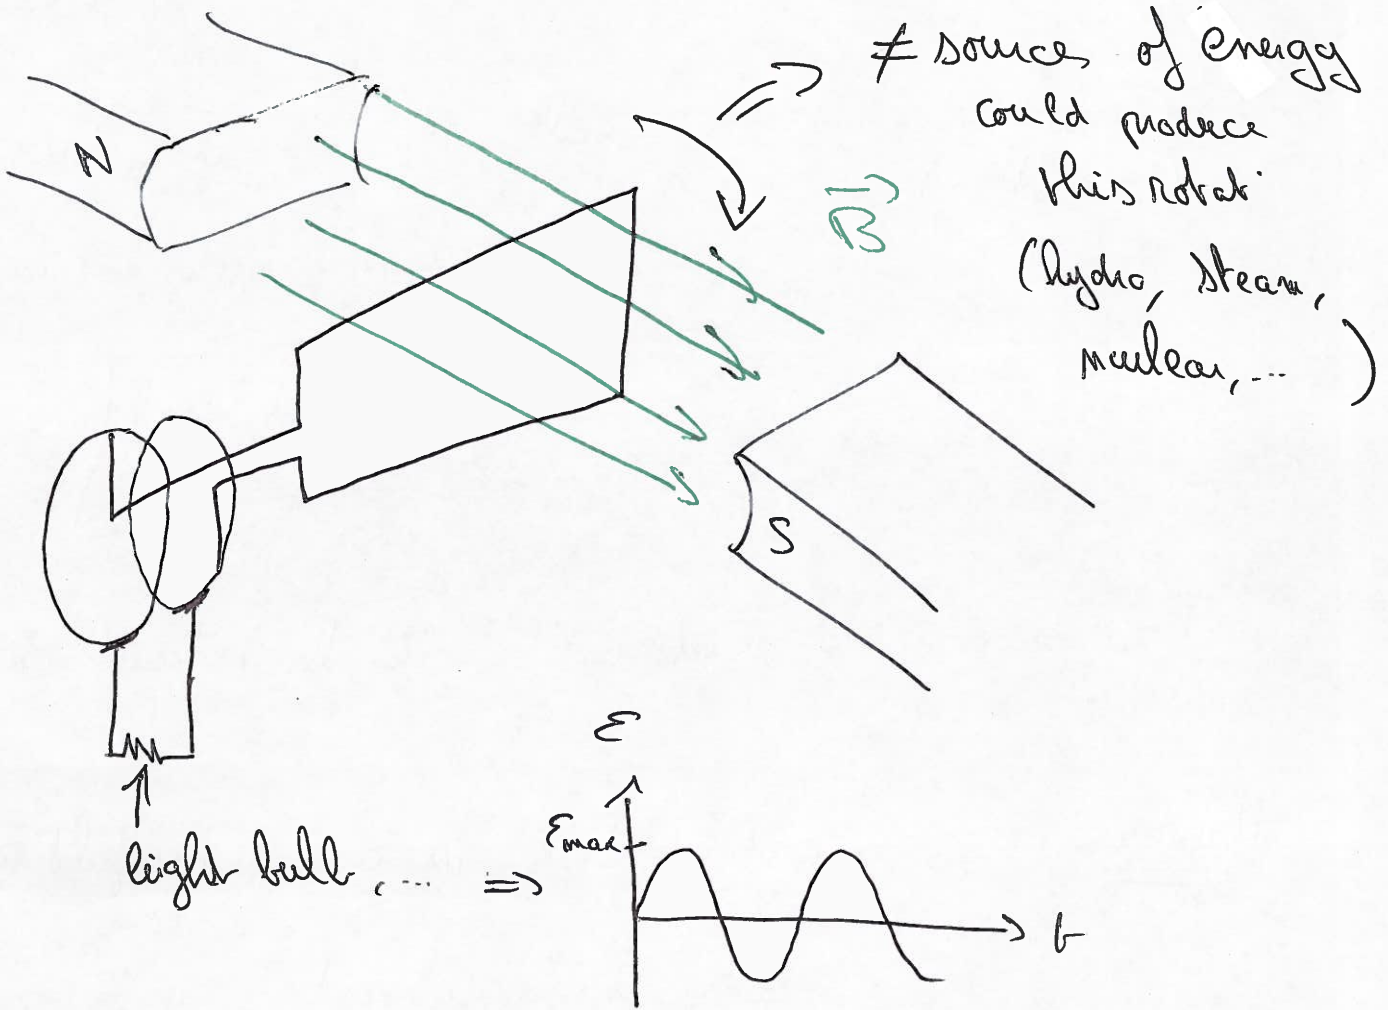 ≠ sources of energy
could produce
this rotat°
(hydro, steam,
nuclear, ... )
N
B
S
light bulb, ... =>
ε
εmax
t